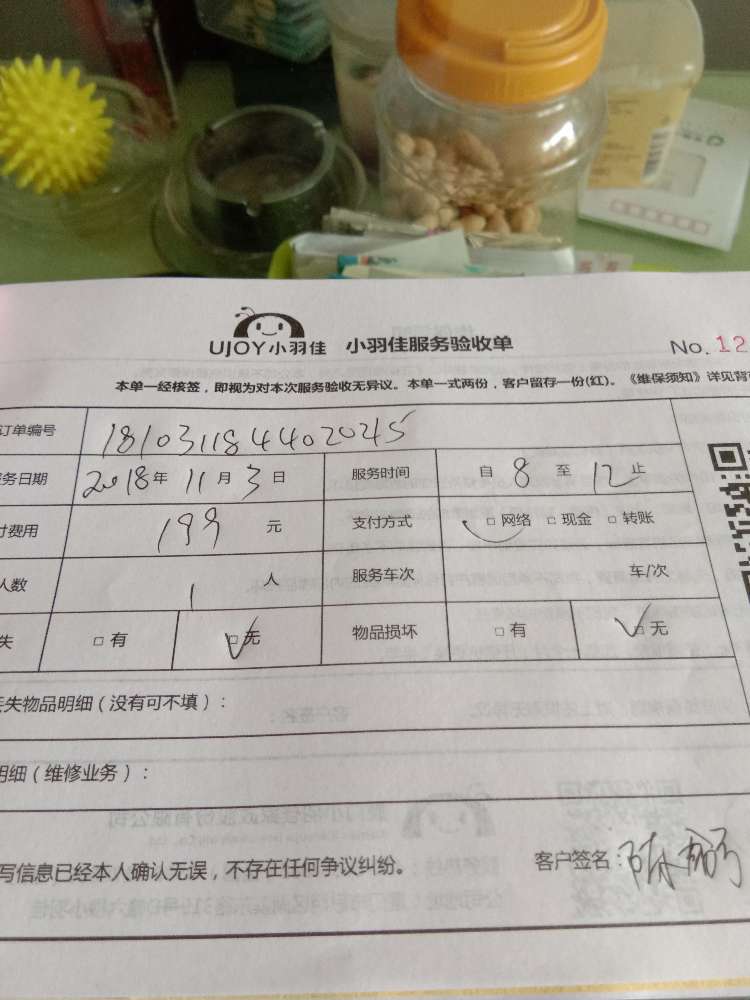 UJOY小羽佳 小羽佳服务验收单 No. 12
本单一经核签，即视为对本次服务验收无异议。本单一式两份，客户留存一份(红)。《维保须知》详见背
订单编号 181031184402045
务日期 2018年 11月 3日 服务时间 自 8 至 12 止
费用 199 元 支付方式 □ 网络 □ 现金 □ 转账
人数 1 人 服务车次 车/次
失 □ 有 □ 无 物品损坏 □ 有 □ 无
失物品明细（没有可不填）：
明细（维修业务）：
写信息已经本人确认无误，不存在任何争议纠纷。 客户签名：